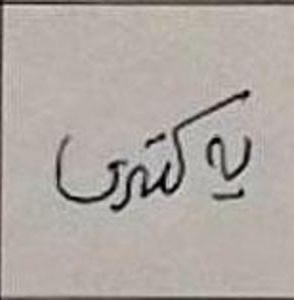 باکتری